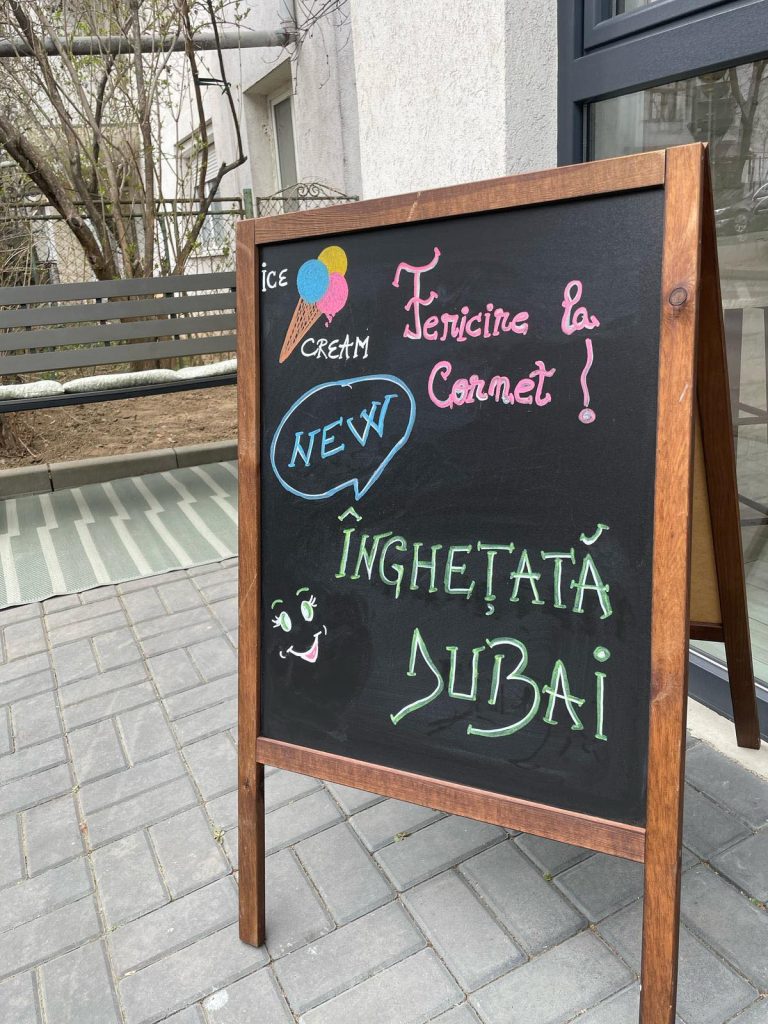 ICE
CREAM
Fericire la
Cornet!
NEW
ÎNGHEȚATĂ
DUBAi